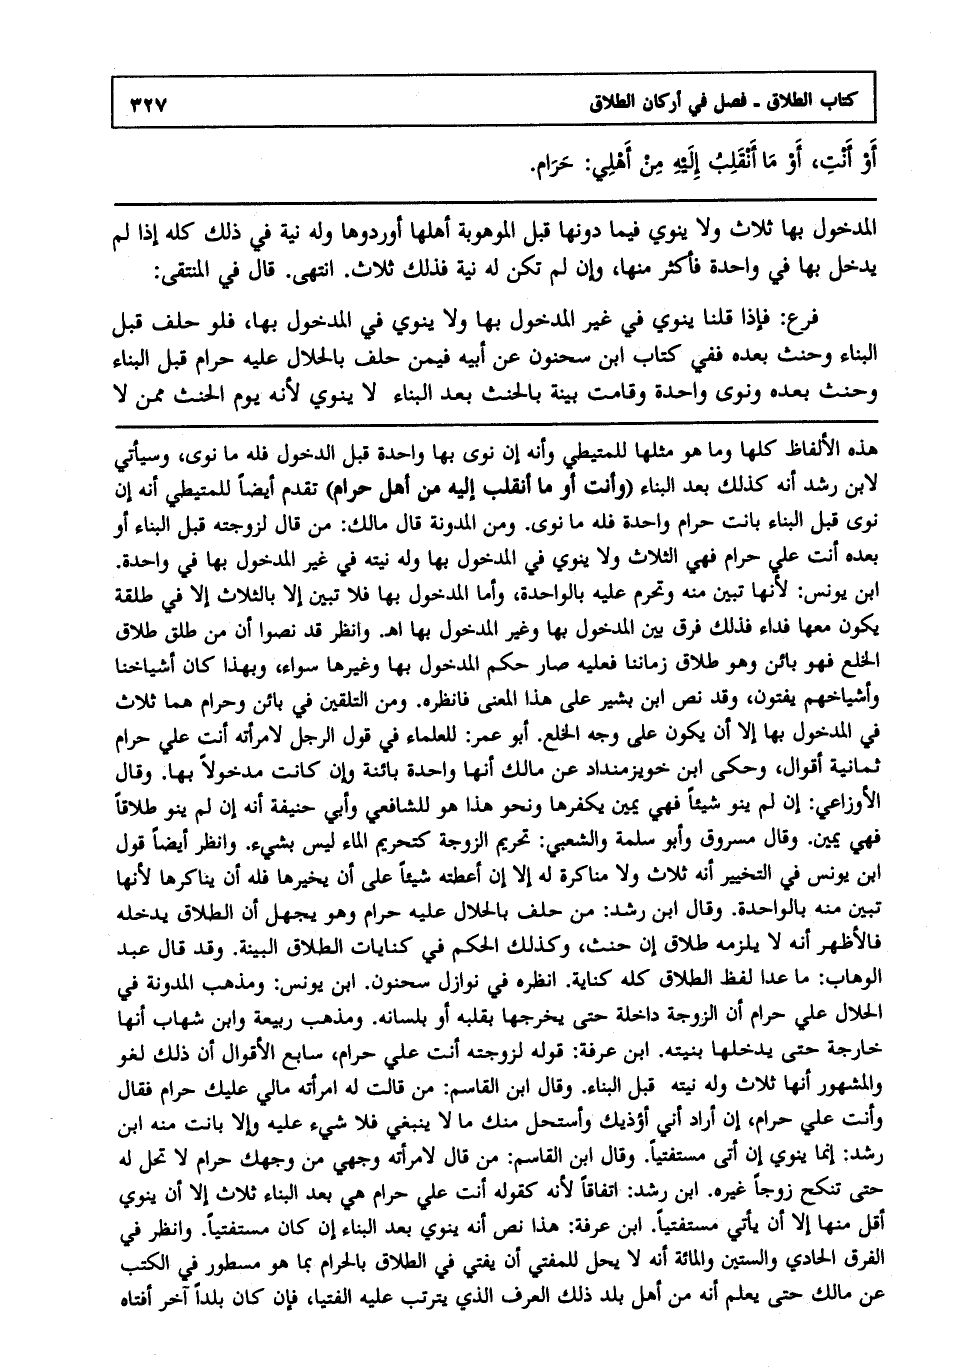 كتاب الطلاق ـ فصل في أركان الطلاق ٣٢٧
أَوْ أَنْتِ، أَوْ مَا أَنْقَلِبُ إِلَيْهِ مِنْ أَهْلِي: حَرَام.
المدخول بها ثلاث ولا ينوي فيما دونها قبل الموهوبة أهلها أوردوها وله نية في ذلك كله إذا لم
يدخل بها في واحدة فأكثر منها، وإن لم تكن له نية فذلك ثلاث. انتهى. قال في المنتقى:
فرع: فإذا قلنا ينوي في غير المدخول بها ولا ينوي في المدخول بها، فلو حلف قبل
البناء وحنث بعده ففي كتاب ابن سحنون عن أبيه فيمن حلف بالحلال عليه حرام قبل البناء
وحنث بعده ونوى واحدة وقامت بينة بالحنث بعد البناء لا ينوي لأنه يوم الحنث ممن لا
هذه الألفاظ كلها وما هو مثلها للمتيطي وأنه إن نوى بها واحدة قبل الدخول فله ما نوى، وسيأتي
لابن رشد أنه كذلك بعد البناء (وأنت أو ما أنقلب إليه من أهل حرام) تقدم أيضاً للمتيطي أنه إن
نوى قبل البناء بانت حرام واحدة فله ما نوى. ومن المدونة قال مالك: من قال لزوجته قبل البناء أو
بعده أنت علي حرام فهي الثلاث ولا ينوي في المدخول بها وله نيته في غير المدخول بها في واحدة.
ابن يونس: لأنها تبين منه وتحرم عليه بالواحدة، وأما المدخول بها فلا تبين إلا بالثلاث إلا في طلقة
يكون معها فداء فذلك فرق بين المدخول بها وغير المدخول بها اهـ. وانظر قد نصوا أن من طلق طلاق
الخلع فهو بائن وهو طلاق زماننا فعليه صار حكم المدخول بها وغيرها سواء، وبهذا كان أشياخنا
وأشياخهم يفتون، وقد نص ابن بشير على هذا المعنى فانظره. ومن التلقين في بائن وحرام هما ثلاث
في المدخول بها إلا أن يكون على وجه الخلع. أبو عمر: للعلماء في قول الرجل لامرأته أنت علي حرام
ثمانية أقوال، وحكى ابن خويزمنداد عن مالك أنها واحدة بائنة وإن كانت مدخولاً بها. وقال
الأوزاعي: إن لم ينو شيئاً فهي يمين يكفرها ونحو هذا هو للشافعي وأبي حنيفة أنه إن لم ينو طلاقاً
فهي يمين. وقال مسروق وأبو سلمة والشعبي: تحريم الزوجة كتحريم الماء ليس بشيء. وانظر أيضاً قول
ابن يونس في التخيير أنه ثلاث ولا مناكرة له إلا إن أعطته شيئاً على أن يخيرها فله أن يناكرها لأنها
تبين منه بالواحدة. وقال ابن رشد: من حلف بالحلال عليه حرام وهو يجهل أن الطلاق يدخله
فالأظهر أنه لا يلزمه طلاق إن حنث، وكذلك الحكم في كنايات الطلاق البينة. وقد قال عبد
الوهاب: ما عدا لفظ الطلاق كله كناية. انظره في نوازل سحنون. ابن يونس: ومذهب المدونة في
الحلال علي حرام أن الزوجة داخلة حتى يخرجها بقلبه أو بلسانه. ومذهب ربيعة وابن شهاب أنها
خارجة حتى يدخلها بنيته. ابن عرفة: قوله لزوجته أنت علي حرام، سابع الأقوال أن ذلك لغو
والمشهور أنها ثلاث وله نيته قبل البناء. وقال ابن القاسم: من قالت له امرأته مالي عليك حرام فقال
وأنت علي حرام، إن أراد أني أؤذيك وأستحل منك ما لا ينبغي فلا شيء عليه وإلا بانت منه ابن
رشد: إنما ينوي إن أتى مستفتياً. وقال ابن القاسم: من قال لامرأته وجهي من وجهك حرام لا تحل له
حتى تنكح زوجاً غيره. ابن رشد: اتفاقاً لأنه كقوله أنت علي حرام هي بعد البناء ثلاث إلا أن ينوي
أقل منها إلا أن يأتي مستفتياً. ابن عرفة: هذا نص أنه ينوي بعد البناء إن كان مستفتياً. وانظر في
الفرق الحادي والستين والمائة أنه لا يحل للمفتي أن يفتي في الطلاق بالحرام بما هو مسطور في الكتب
عن مالك حتى يعلم أنه من أهل بلد ذلك العرف الذي يترتب عليه الفتيا، فإن كان بلداً آخر أفتاه